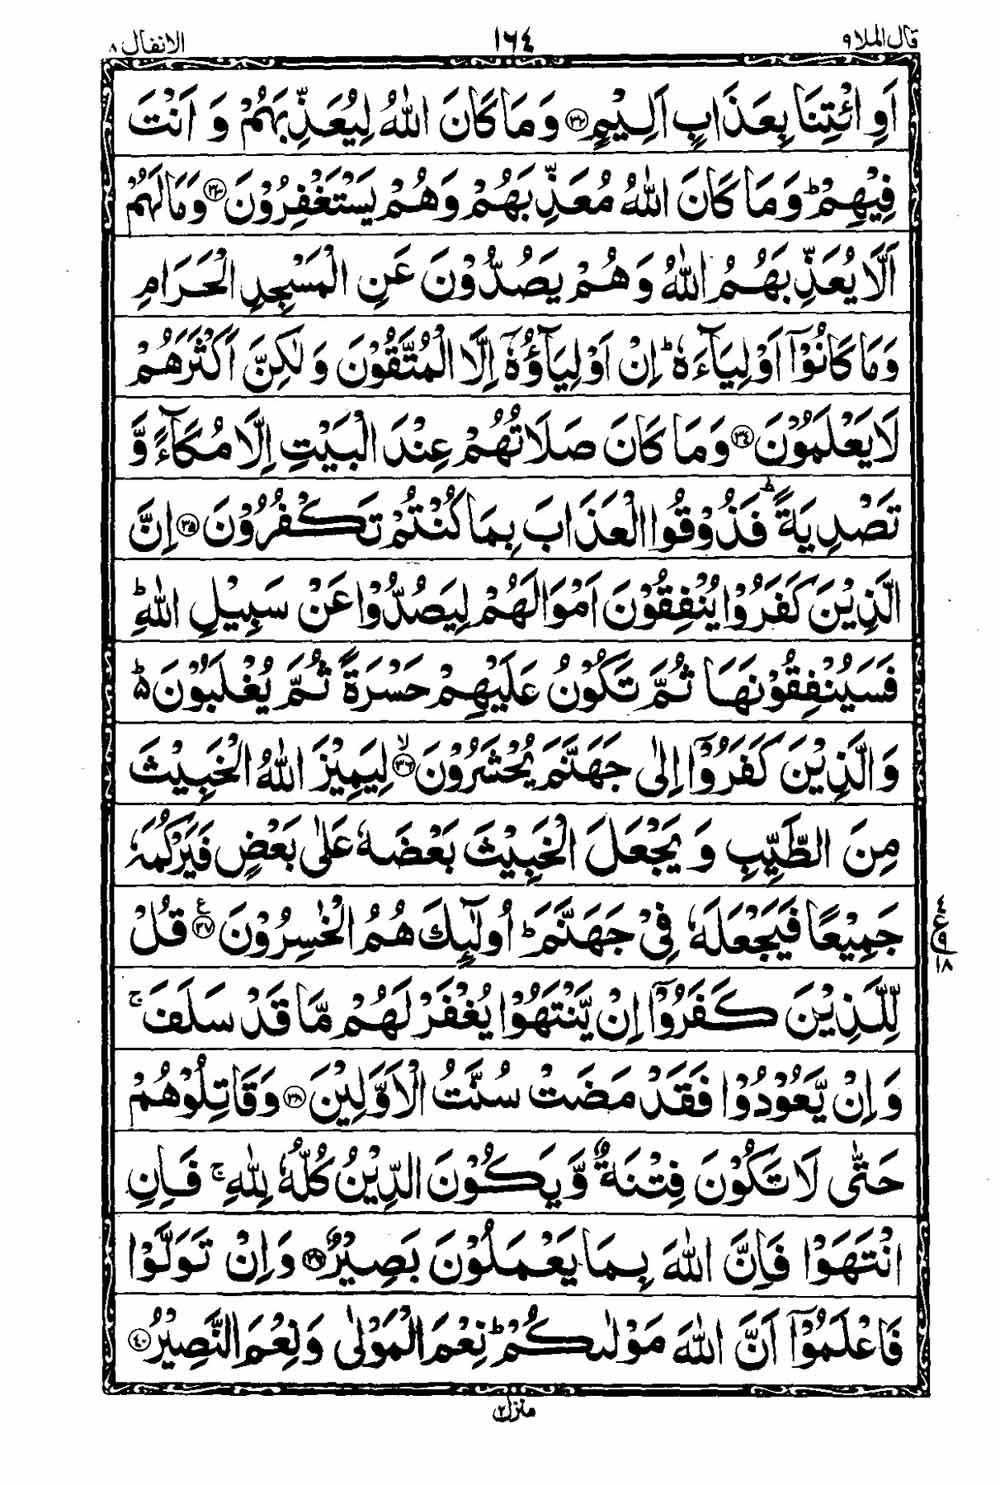 قال الملا ٩ ١٦٤ الانفال ٨
اَوِ ائْتِنَا بِعَذَابٍ اَلِيْمٍ ﴿٣٢﴾ وَمَا كَانَ اللّٰهُ لِيُعَذِّبَهُمْ وَ اَنْتَ
فِيْهِمْ ؕ وَمَا كَانَ اللّٰهُ مُعَذِّبَهُمْ وَهُمْ يَسْتَغْفِرُوْنَ ﴿٣٣﴾ وَمَا لَهُمْ
اَلَّا يُعَذِّبَهُمُ اللّٰهُ وَهُمْ يَصُدُّوْنَ عَنِ الْمَسْجِدِ الْحَرَامِ
وَمَا كَانُوْۤا اَوْلِيَآءَهٗ ؕ اِنْ اَوْلِيَآؤُهٗۤ اِلَّا الْمُتَّقُوْنَ وَلٰكِنَّ اَكْثَرَهُمْ
لَا يَعْلَمُوْنَ ﴿٣٤﴾ وَمَا كَانَ صَلَاتُهُمْ عِنْدَ الْبَيْتِ اِلَّا مُكَآءً وَّ
تَصْدِيَةً ؕ فَذُوْقُوا الْعَذَابَ بِمَا كُنْتُمْ تَكْفُرُوْنَ ﴿٣٥﴾ اِنَّ
الَّذِيْنَ كَفَرُوْا يُنْفِقُوْنَ اَمْوَالَهُمْ لِيَصُدُّوْا عَنْ سَبِيْلِ اللّٰهِ ؕ
فَسَيُنْفِقُوْنَهَا ثُمَّ تَكُوْنُ عَلَيْهِمْ حَسْرَةً ثُمَّ يُغْلَبُوْنَ ؕ۬
وَالَّذِيْنَ كَفَرُوْۤا اِلٰى جَهَنَّمَ يُحْشَرُوْنَ ۙ﴿٣٦﴾ لِيَمِيْزَ اللّٰهُ الْخَبِيْثَ
مِنَ الطَّيِّبِ وَ يَجْعَلَ الْخَبِيْثَ بَعْضَهٗ عَلٰى بَعْضٍ فَيَرْكُمَهٗ
جَمِيْعًا فَيَجْعَلَهٗ فِيْ جَهَنَّمَ ؕ اُولٰٓئِكَ هُمُ الْخٰسِرُوْنَ ﴿٣٧﴾ ع قُلْ
٤ ع ٩ ١٨
لِّلَّذِيْنَ كَفَرُوْۤا اِنْ يَّنْتَهُوْا يُغْفَرْ لَهُمْ مَّا قَدْ سَلَفَ ۚ
وَاِنْ يَّعُوْدُوْا فَقَدْ مَضَتْ سُنَّتُ الْاَوَّلِيْنَ ﴿٣٨﴾ وَقَاتِلُوْهُمْ
حَتّٰى لَا تَكُوْنَ فِتْنَةٌ وَّيَكُوْنَ الدِّيْنُ كُلُّهٗ لِلّٰهِ ۚ فَاِنِ
انْتَهَوْا فَاِنَّ اللّٰهَ بِمَا يَعْمَلُوْنَ بَصِيْرٌ ﴿٣٩﴾ وَاِنْ تَوَلَّوْا
فَاعْلَمُوْۤا اَنَّ اللّٰهَ مَوْلٰىكُمْ ؕ نِعْمَ الْمَوْلٰى وَنِعْمَ النَّصِيْرُ ﴿٤٠﴾
منزل ٢